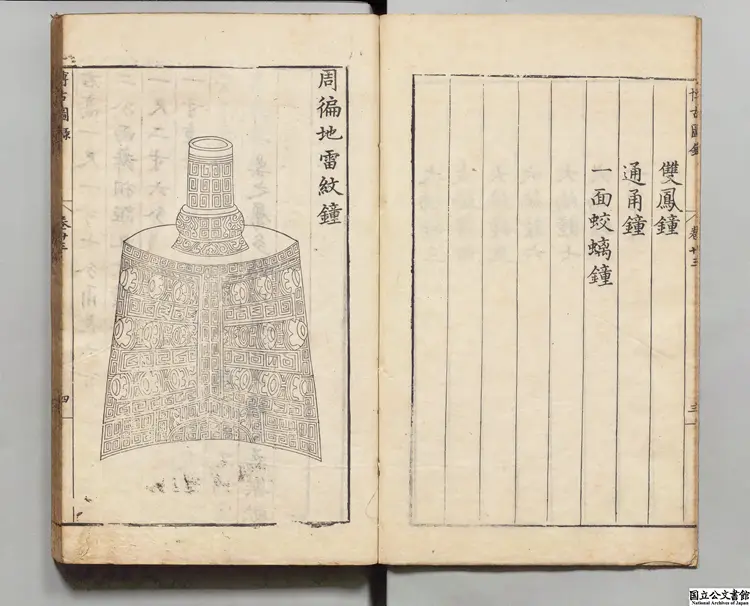 雙鳳鐘
通甬鐘
一面蛟螭鐘
博古圖錄
卷廿三
三
周徧地雷紋鐘
博古圖錄
卷廿三
四
国立公文書館
National Archives of Japan